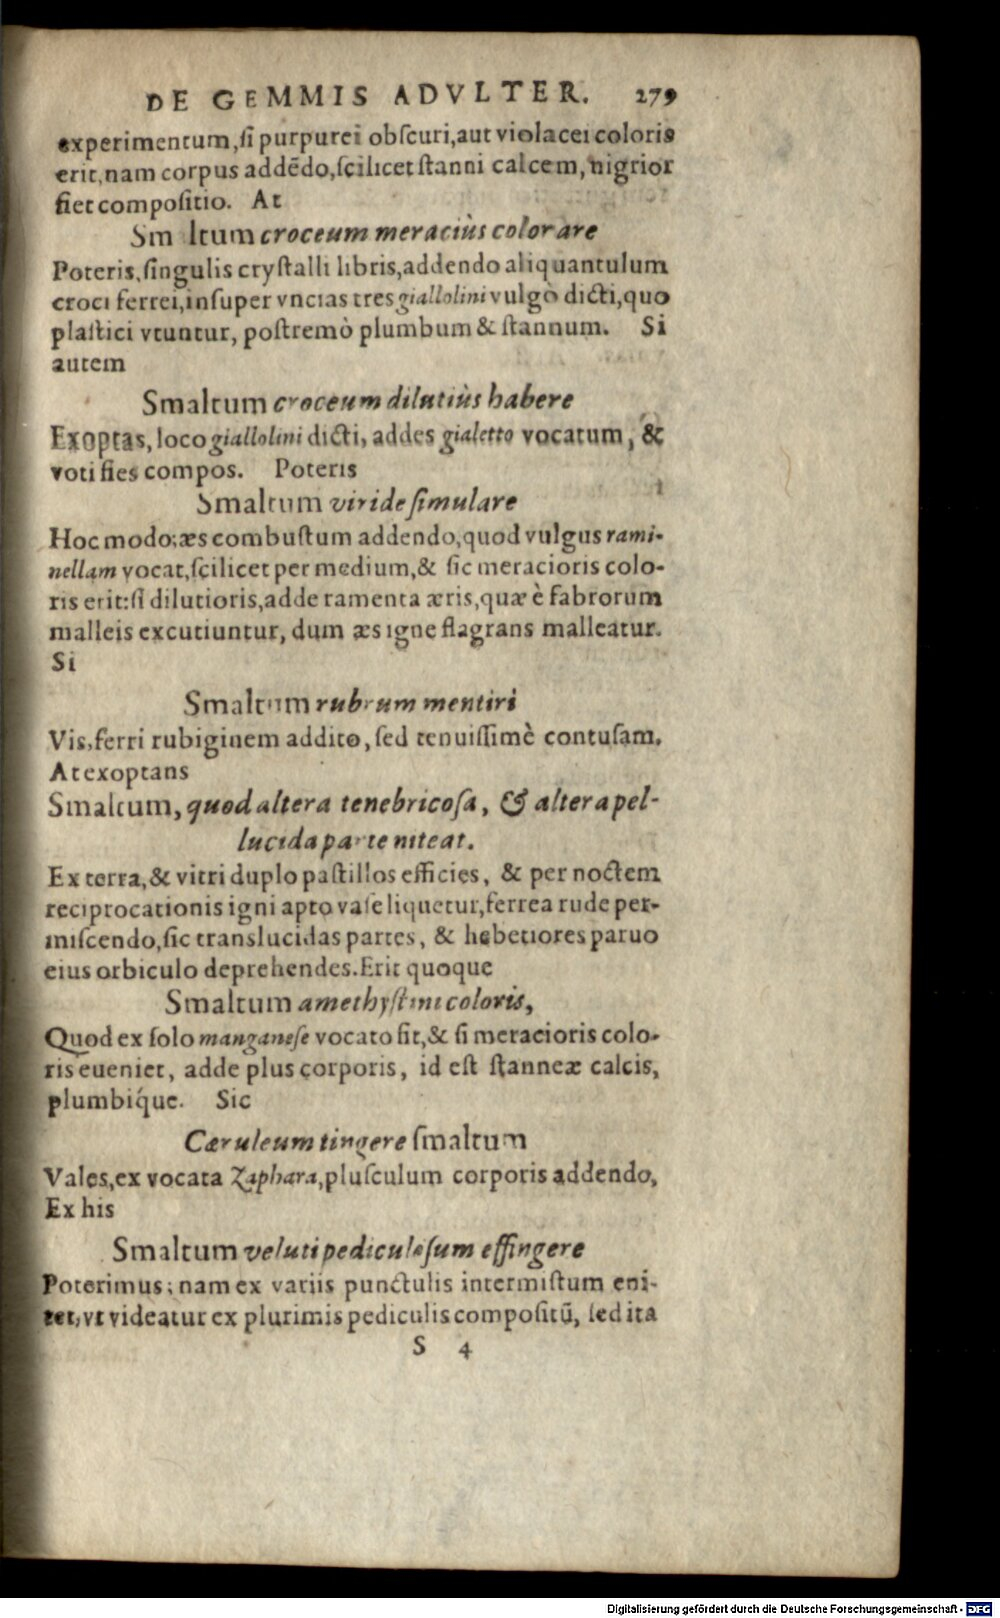 DE GEMMIS ADVLTER. 279
experimentum, ſi purpurei obſcuri, aut violacei coloris
erit, nam corpus addēdo, ſcilicet ſtanni calcem, nigrior
fiet compoſitio. At
Sm ltum croceum meraciùs colorare
Poteris, ſingulis cryſtalli libris, addendo aliquantulum
croci ferrei, inſuper vncias tres giallolini vulgò dicti, quo
plaſtici vtuntur, poſtremò plumbum & ſtannum. Si
autem
Smaltum croceum dilutiùs habere
Exoptas, loco giallolini dicti, addes gialetto vocatum, &
voti fies compos. Poteris
Smaltum viride ſimulare
Hoc modo; æs combuſtum addendo, quod vulgus rami-
nellam vocat, ſcilicet per medium, & ſic meracioris colo-
ris erit: ſi dilutioris, adde ramenta æris, quæ è fabrorum
malleis excutiuntur, dum æs igne flagrans malleatur.
Si
Smaltum rubrum mentiri
Vis, ferri rubiginem addito, ſed tenuiſſimè contuſam.
At exoptans
Smaltum, quod altera tenebricoſa, & altera pel-
lucida parte niteat.
Ex terra, & vitri duplo paſtillos efficies, & per noctem
reciprocationis igni apto vaſe liquetur, ferrea rude per-
miſcendo, ſic translucidas partes, & hebetiores paruo
eius orbiculo deprehendes. Erit quoque
Smaltum amethyſtini coloris,
Quod ex ſolo manganeſe vocato fit, & ſi meracioris colo-
ris eueniet, adde plus corporis, id eſt ſtanneæ calcis,
plumbiq́ue. Sic
Cæruleum tingere ſmaltum
Vales, ex vocata Zaphara, pluſculum corporis addendo,
Ex his
Smaltum veluti pediculoſum effingere
Poterimus; nam ex variis punctulis intermiſtum eni-
tet, vt videatur ex plurimis pediculis compoſitū, ſed ita
S 4
Digitalisierung gefördert durch die Deutsche Forschungsgemeinschaft - DFG